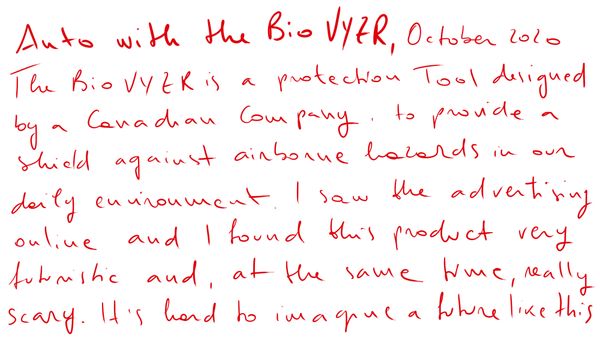 Auto with the Bio VYZR, October 2020
The Bio VYZR is a protection Tool designed
by a Canadian Company. to provide a
shield against airborne hazards in our
daily environment. I saw the advertising
online and I found this product very
futuristic and, at the same time, really
scary. It's hard to imagine a future like this